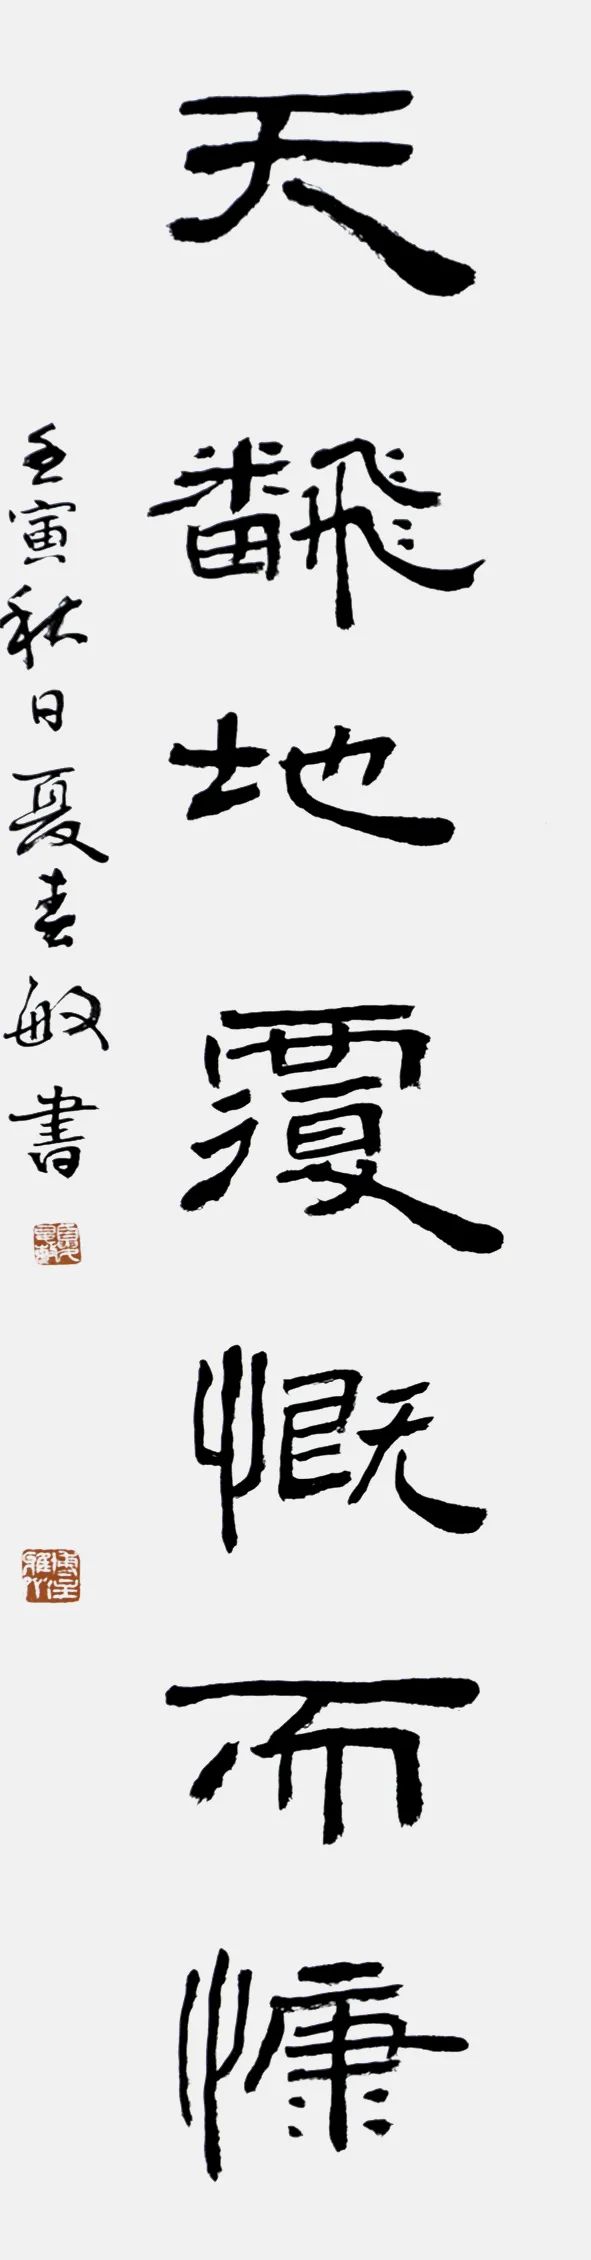 天飜地覆慨而慷
壬寅秋日夏春敏書